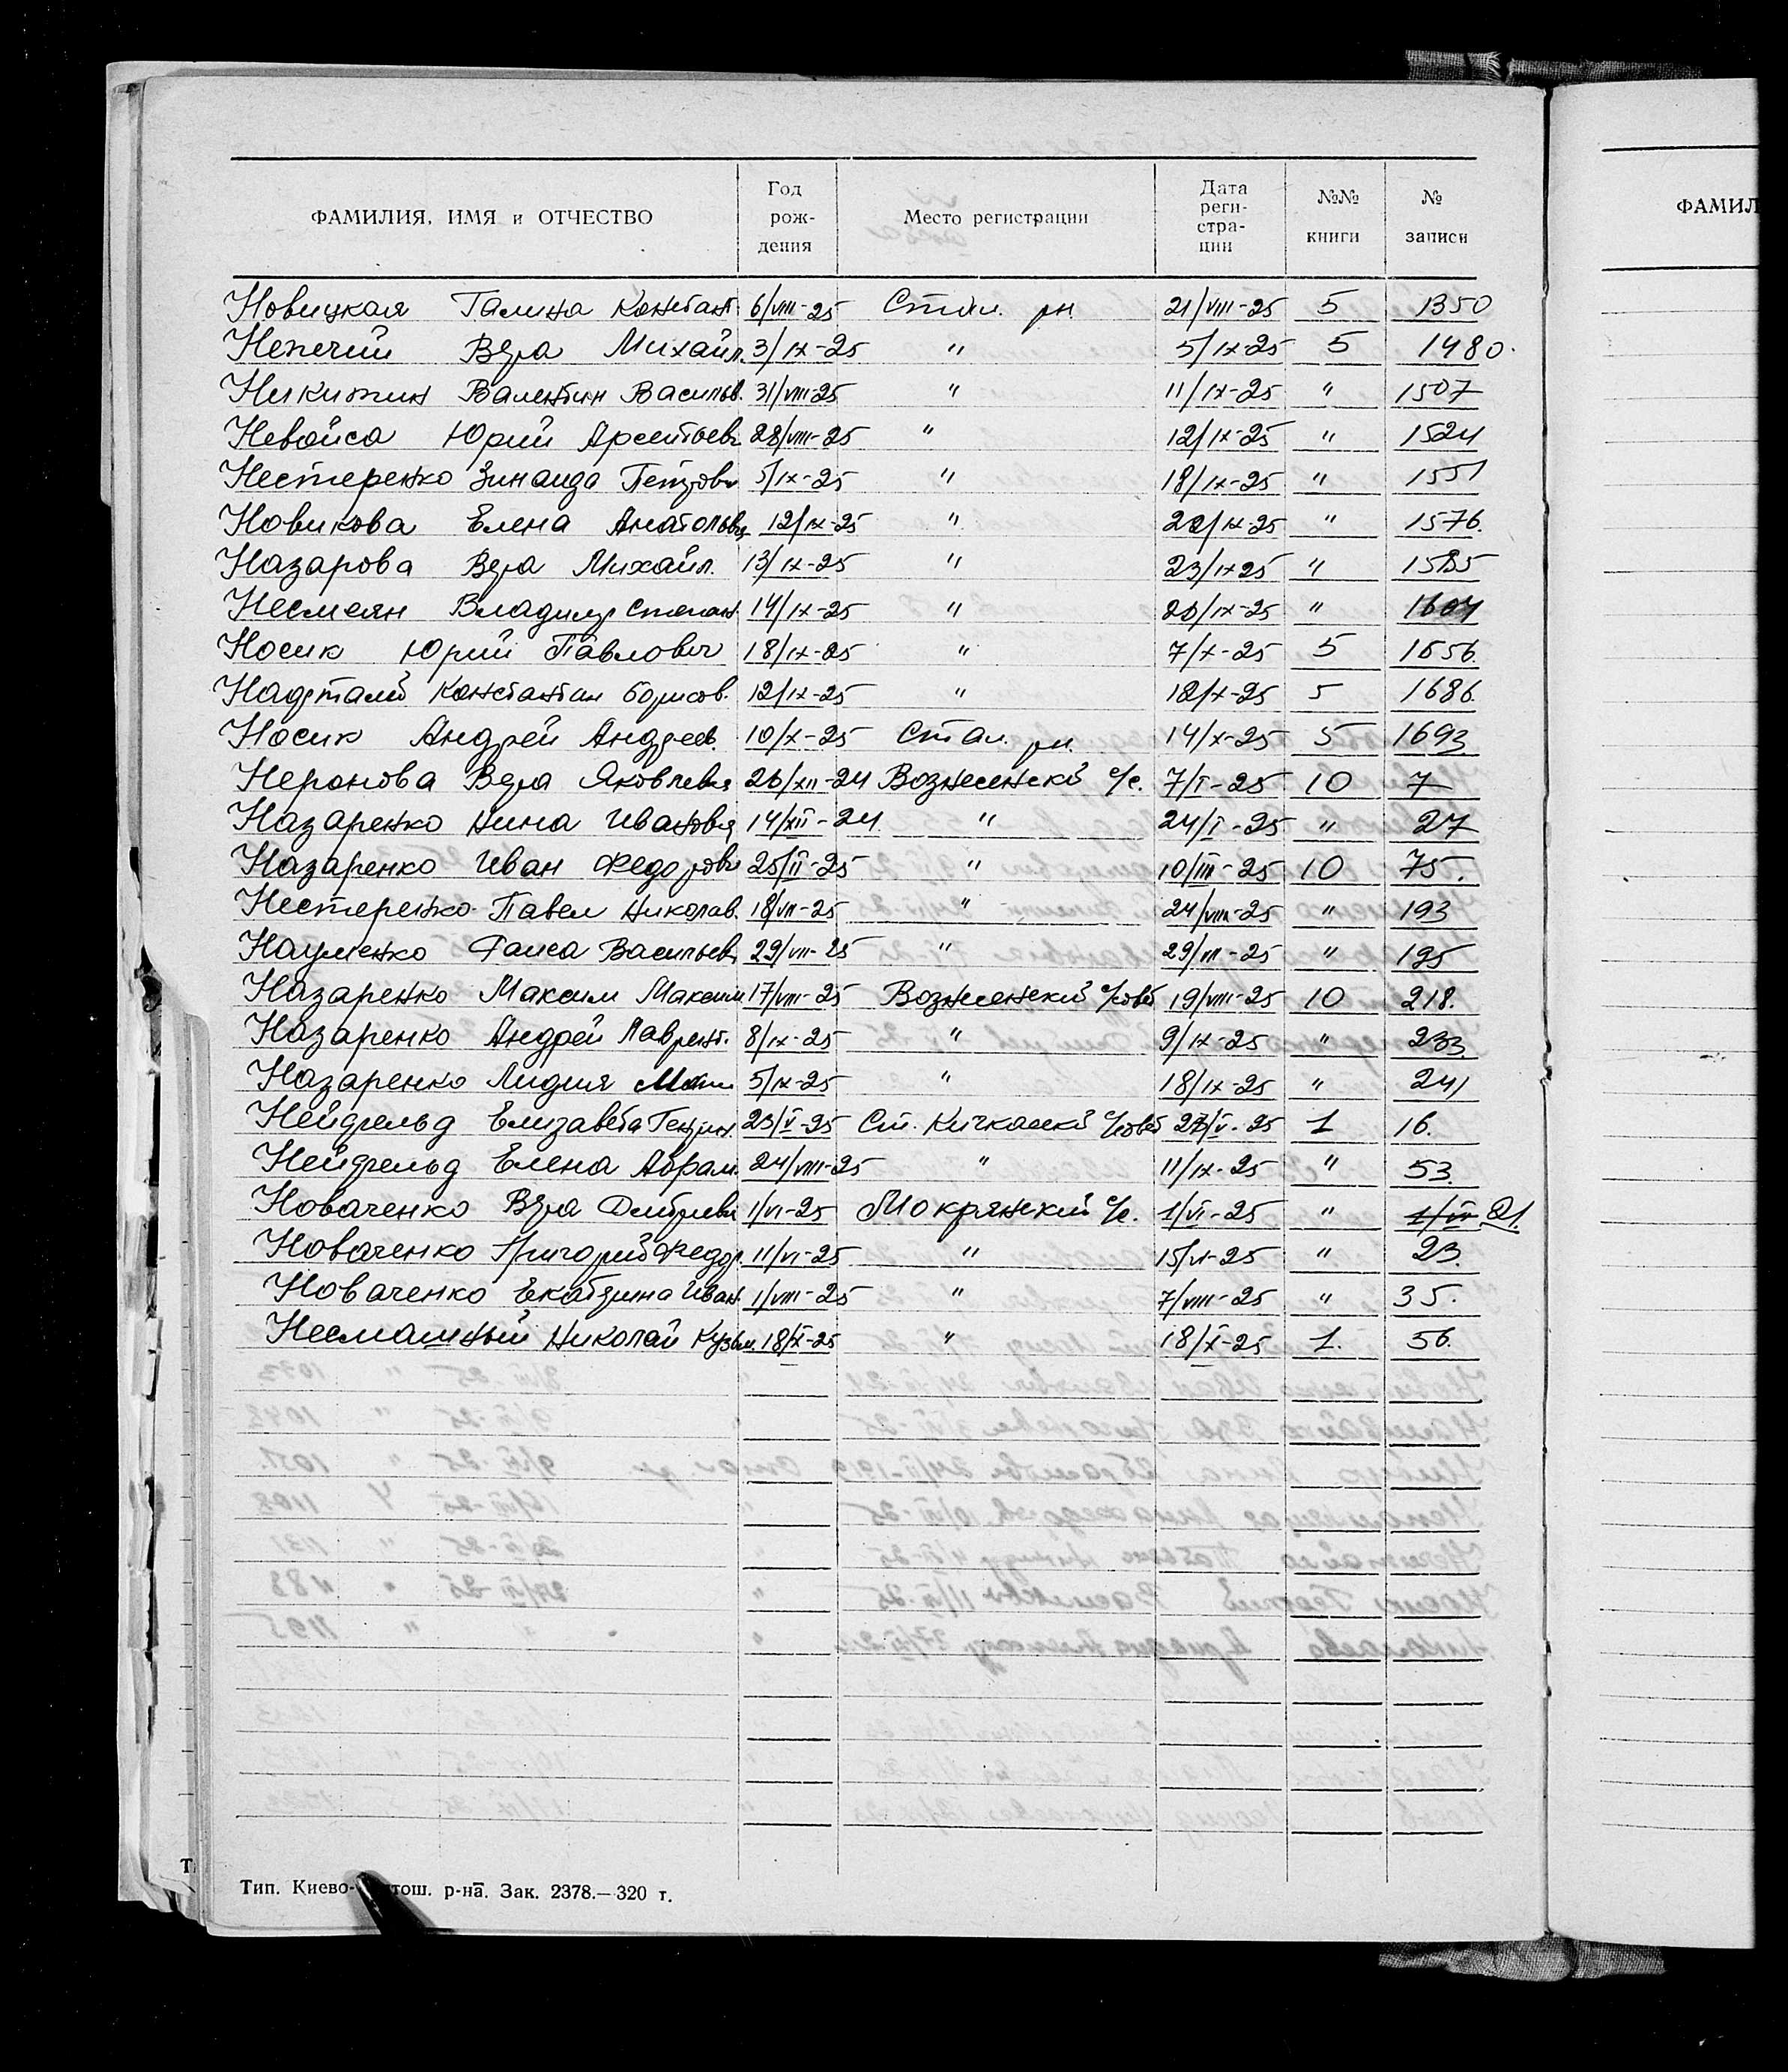 ФАМИЛИЯ, ИМЯ и ОТЧЕСТВО Год рождения Место регистрации Дата регистрации №№ книги № записи ФАМИЛ
Новицкая Галина Констант. 6/VIII-25 Стал. рн. 21/VIII-25 5 1350
Непечий Вера Михайл. 3/IX-25 " 5/IX-25 5 1480.
Никитин Валентин Васильв. 31/VIII-25 " 11/IX-25 " 1507
Невойса Юрий Арсентьев. 28/VIII-25 " 12/IX-25 " 1524
Нестеренко Зинаида Петровн 5/IX-25 " 18/IX-25 " 1551
Новикова Елена Анатольевн 12/IX-25 " 22/IX-25 " 1576.
Назарова Вера Михайл. 13/IX-25 " 23/IX25 " 1585
Несмеян Владимир Степан. 14/IX-25 " 26/IX-25 " 1604
Носик Юрий Павлович 18/IX-25 " 7/X-25 5 1656.
Константин Борисов. 12/IX-25 " 12/X-25 5 1686.
Носик Андрей Андреев. 10/X-25 Стал. рн. 14/X-25 5 1693
Неронова Вера Яковлевна 26/XII-24 Вознесенский с/с. 7/I-25 10 7
Назаренко Нина Ивановн 14/XII-24 " 24/I-25 " 27
Назаренко Иван Федорович 25/II-25 " 10/III-25 10 75.
Нестеренко Павел Николав. 18/VII-25 " 24/VIII-25 " 193
Науменко Раиса Васильев 29/VII-25 " 29/VII-25 " 195
Назаренко Максим Максим 17/VIII-25 Вознесенский с/совет 19/VIII-25 10 218.
Назаренко Андрей Лаврент. 8/IX-25 " 9/IX-25 " 233
Назаренко Лидия 5/IX-25 " 18/IX-25 " 241
Нейфельд Елизавета Генрих. 23/V-25 Ст. Кичкасский с/совет 27/V-25 1 16.
Нейфельд Елена Абрам. 24/VIII-25 " 11/IX-25 " 53.
Новаченко Вера Дмитриевн 1/VI-25 Мокрянский с/с. 1/VI-25 " 21.
Новаченко Григорий Федор. 11/VI-25 " 15/VI-25 " 23.
Новаченко Екатерина Иван. 1/VIII-25 " 7/VIII-25 " 35.
Несмашный Николай Кузьм. 18/X-25 " 18/X-25 1. 56.
Тип. Киево- тош. р-на. Зак. 2378.—320 т.